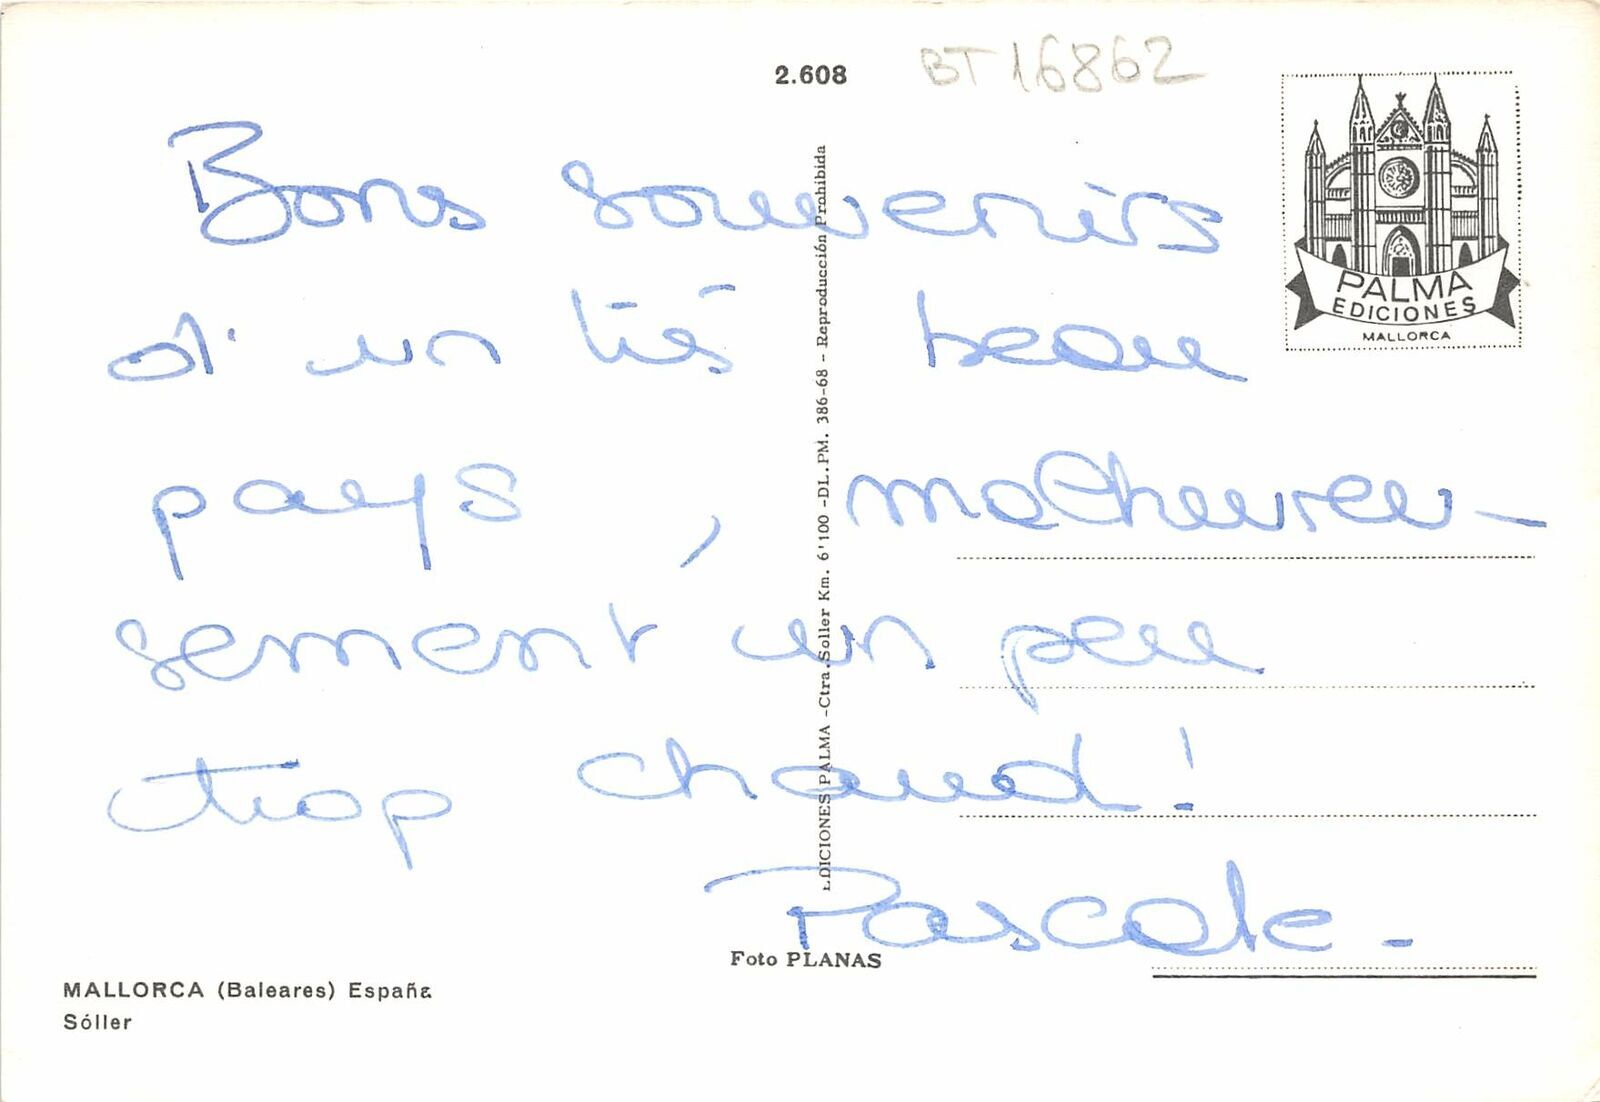 2.608
BT 16862
PALMA
EDICIONES
MALLORCA
Bons souvenirs
d'un très beau
pays, malheureu-
sement un peu
trop chaud!
Pascale -
EDICIONES PALMA - Ctra. Soller Km. 6'100 - DL. PM. 386-68 - Reproducción Prohibida
Foto PLANAS
MALLORCA (Baleares) España
Sóller